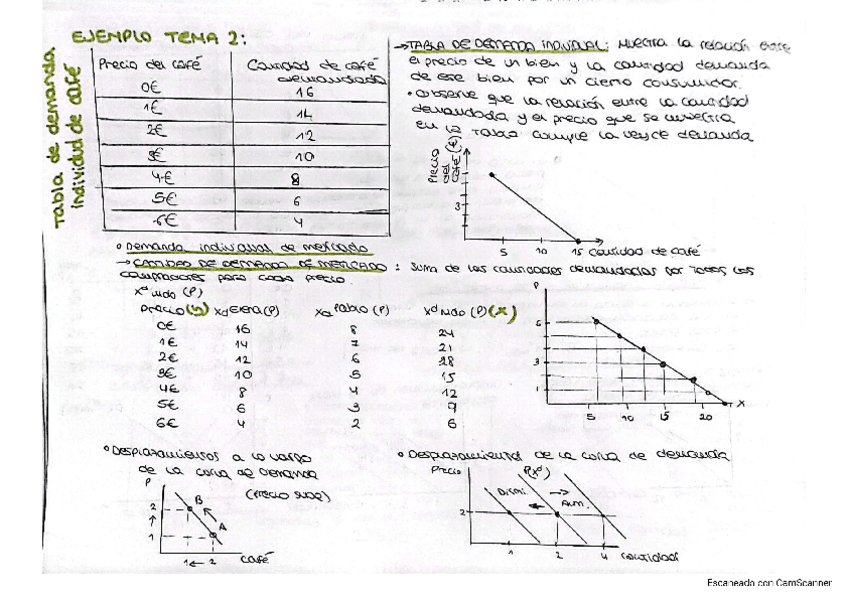 EJEMPLO TEMA 2:
Tabla de demanda
individual de café
Precio del café Cantidad de café
demandada
0€ 16
1€ 14
2€ 12
3€ 10
4€ 8
5€ 6
6€ 4
→TABLA DE DEMANDA INDIVIDUAL: Muestra la relación entre
el precio de un bien y la cantidad demanda
de ese bien por un cierto consumidor.
• Observe que la relación entre la cantidad
demandada y el precio que se muestra
en la tabla cumple la ley de demanda
Precio
del
café (€)
3
5 10 15 cantidad de café
• Demanda individual de mercado
→ CANTIDAD DE DEMANDA DE MERCADO: Suma de las cantidades demandadas por todos los
compradores para cada precio.
Xd mdo (P)
Precio (y) Xd Elena (P) Xd Pablo (P) Xd mdo (P) (X)
0€ 16 8 24
1€ 14 7 21
2€ 12 6 28
3€ 10 5 15
4€ 8 4 12
5€ 6 3 9
6€ 4 2 6
P
6
3
1
5 10 15 20 X
• Desplazamientos a lo largo
de la curva de demanda
(Precio sube)
P
2
↑
1
B
A
1 ← 2 café
• Desplazamientos de la curva de demanda
Precio
P(Xd)
Dismi. → Aum.
←
2
1 2 4 cantidad
Escaneado con CamScanner